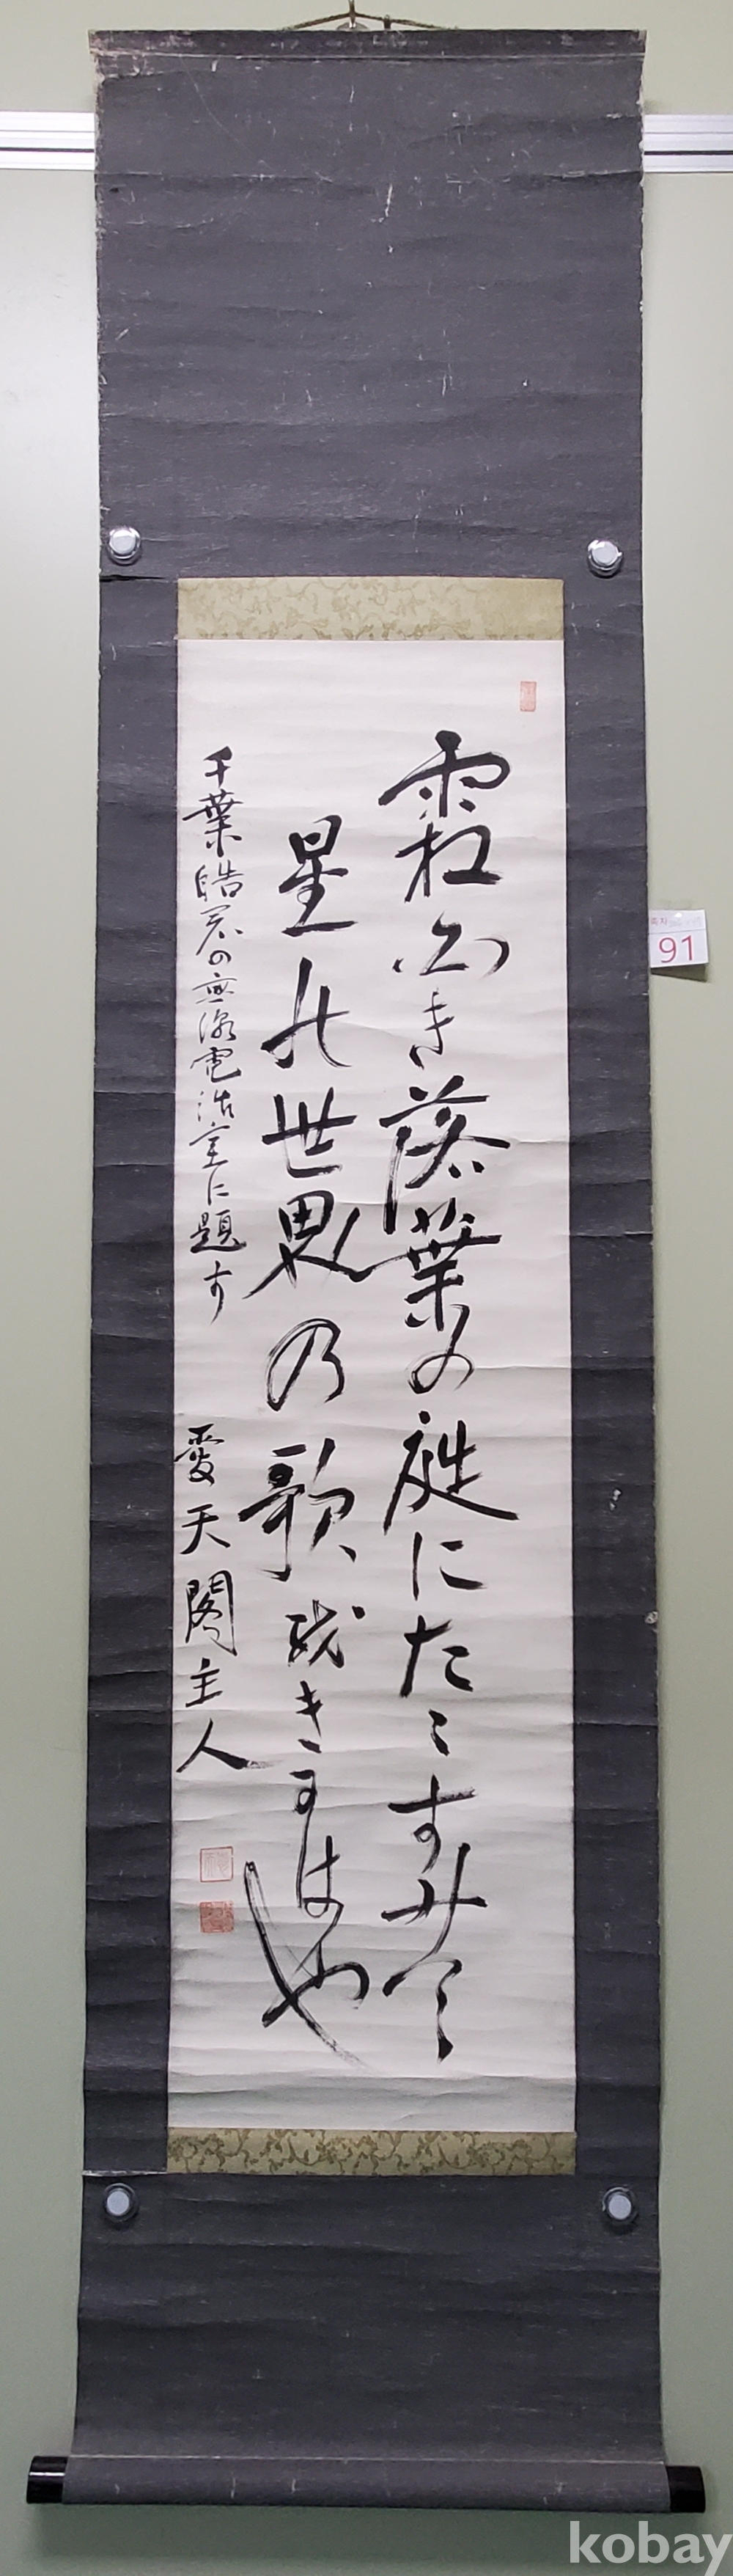 霜白き落葉の庭にたゝすみて
星の世界の歌きかはや
千葉皓君の無線電話室に題す
愛天閣主人
91
kobay